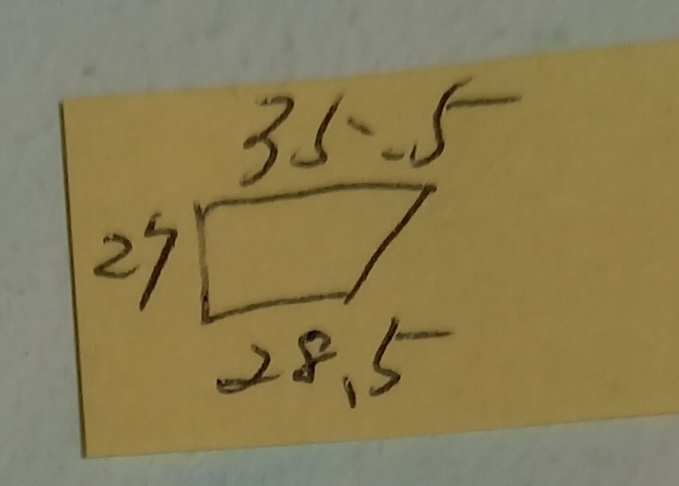 35.5
27
28.5